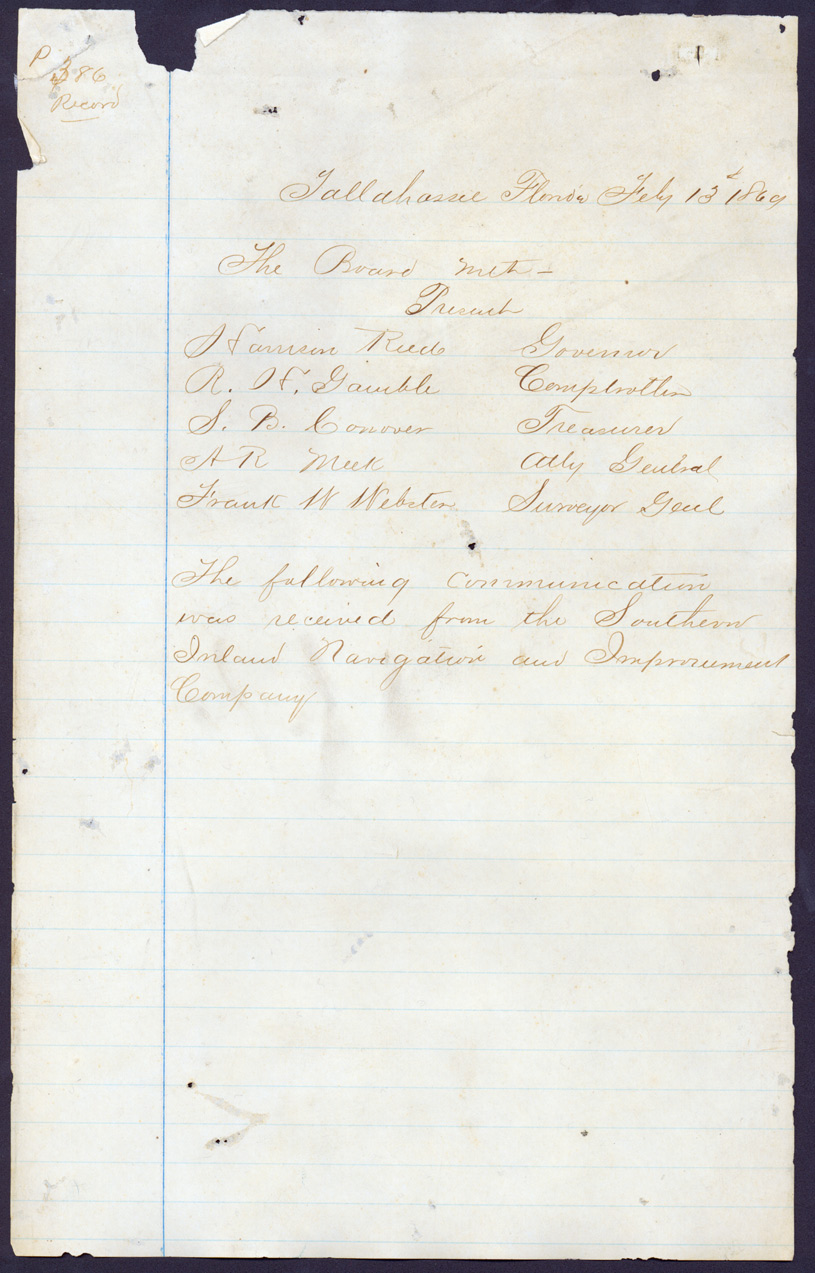 P 386
Record
Tallahassee Florida Feby 13th 1869
The Board met -
Present
Harrison Reed Governor
R. H. Gamble Comptroller
S. B. Conover Treasurer
A R Meek Atty General
Frank W Webster Surveyor Genl
The following communication
was received from the Southern
Inland Navigation and Improvement
Company